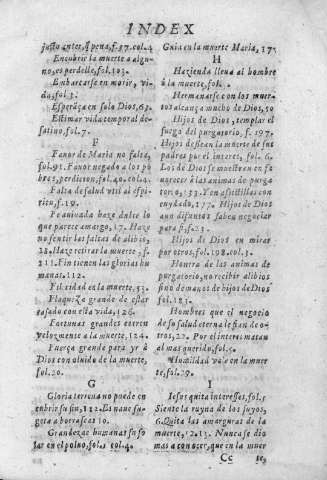 INDEX
justo antes, q̃ pena, f. 57. col. 4
Encubrir la muerte a alguno, es perdelle, fol. 103.
Embarcarse en morir, vida, fol. 3.
Esperãça en solo Dios, 65.
Estimar vida temporal desatino, fol. 7.
F
Fauor de Maria no falta,
fol. 91. Fauor negado a los pobres, perdicion, fol. 40. col. 4.
Falta de salud vtil al espiritu, f. 19.
haze dulce lo
que parece amargo, 17. Haze
no sentir las faltas de aliuio,
28. Haze retirar la muerte, f.
211. Fin tienen las glorias humanas. 112.
Felicidad en la muerte, 53.
Flaqueza grande de estar
casado con esta vida, 126.
Fortunas grandes corren
velozmente a la muerte, 124.
Fuerça grande para yr à
Dios con oluido de la muerte,
fol. 20.
G
Gloria terrena no puede encubrir su fin, 112. Es naue sujeta a borrascas 10.
Grandezas humanas su fosar en el poluo, fol. 1 col. 4.
Guia en la muerte Maria, 17.
H
Hazienda lleua al hombre
à la muerte, fol.
Hermanarse con los muertos alcança mucho de Dios, 50
Hijos de Dios, templar el
fuego del purgatorio, f. 197.
Hijos desean la muerte de sus
padres por el interes, fol. 6.
Los de Dios se muestran en fauorecer à las animas de purgatorio, 133. Y en afsistillas con
cuydado, 177. Hijos de Dios
aun difuntos saben negociar
para si, f. 23.
Hijos de Dios en mirar
por otros, fol. 198. col. 3.
Honrra de las animas de
purgatorio, no recibir aliuios
sino de manos de hijos de Dios
fol. 183.
Hombres que el negocio
de su salud eterna le fian de otros, 22. Por el interes matan
al mas querido, fol. 5.
Humildad vale en la muerte, fol. 29.
I
Iesus quita interesses, fol. 5
Siente la ruyna de los suyos,
6. Quita las amarguras de la
muerte, 12. 13. Nunca se dio
mas a conocer, que a la muer-
Cc